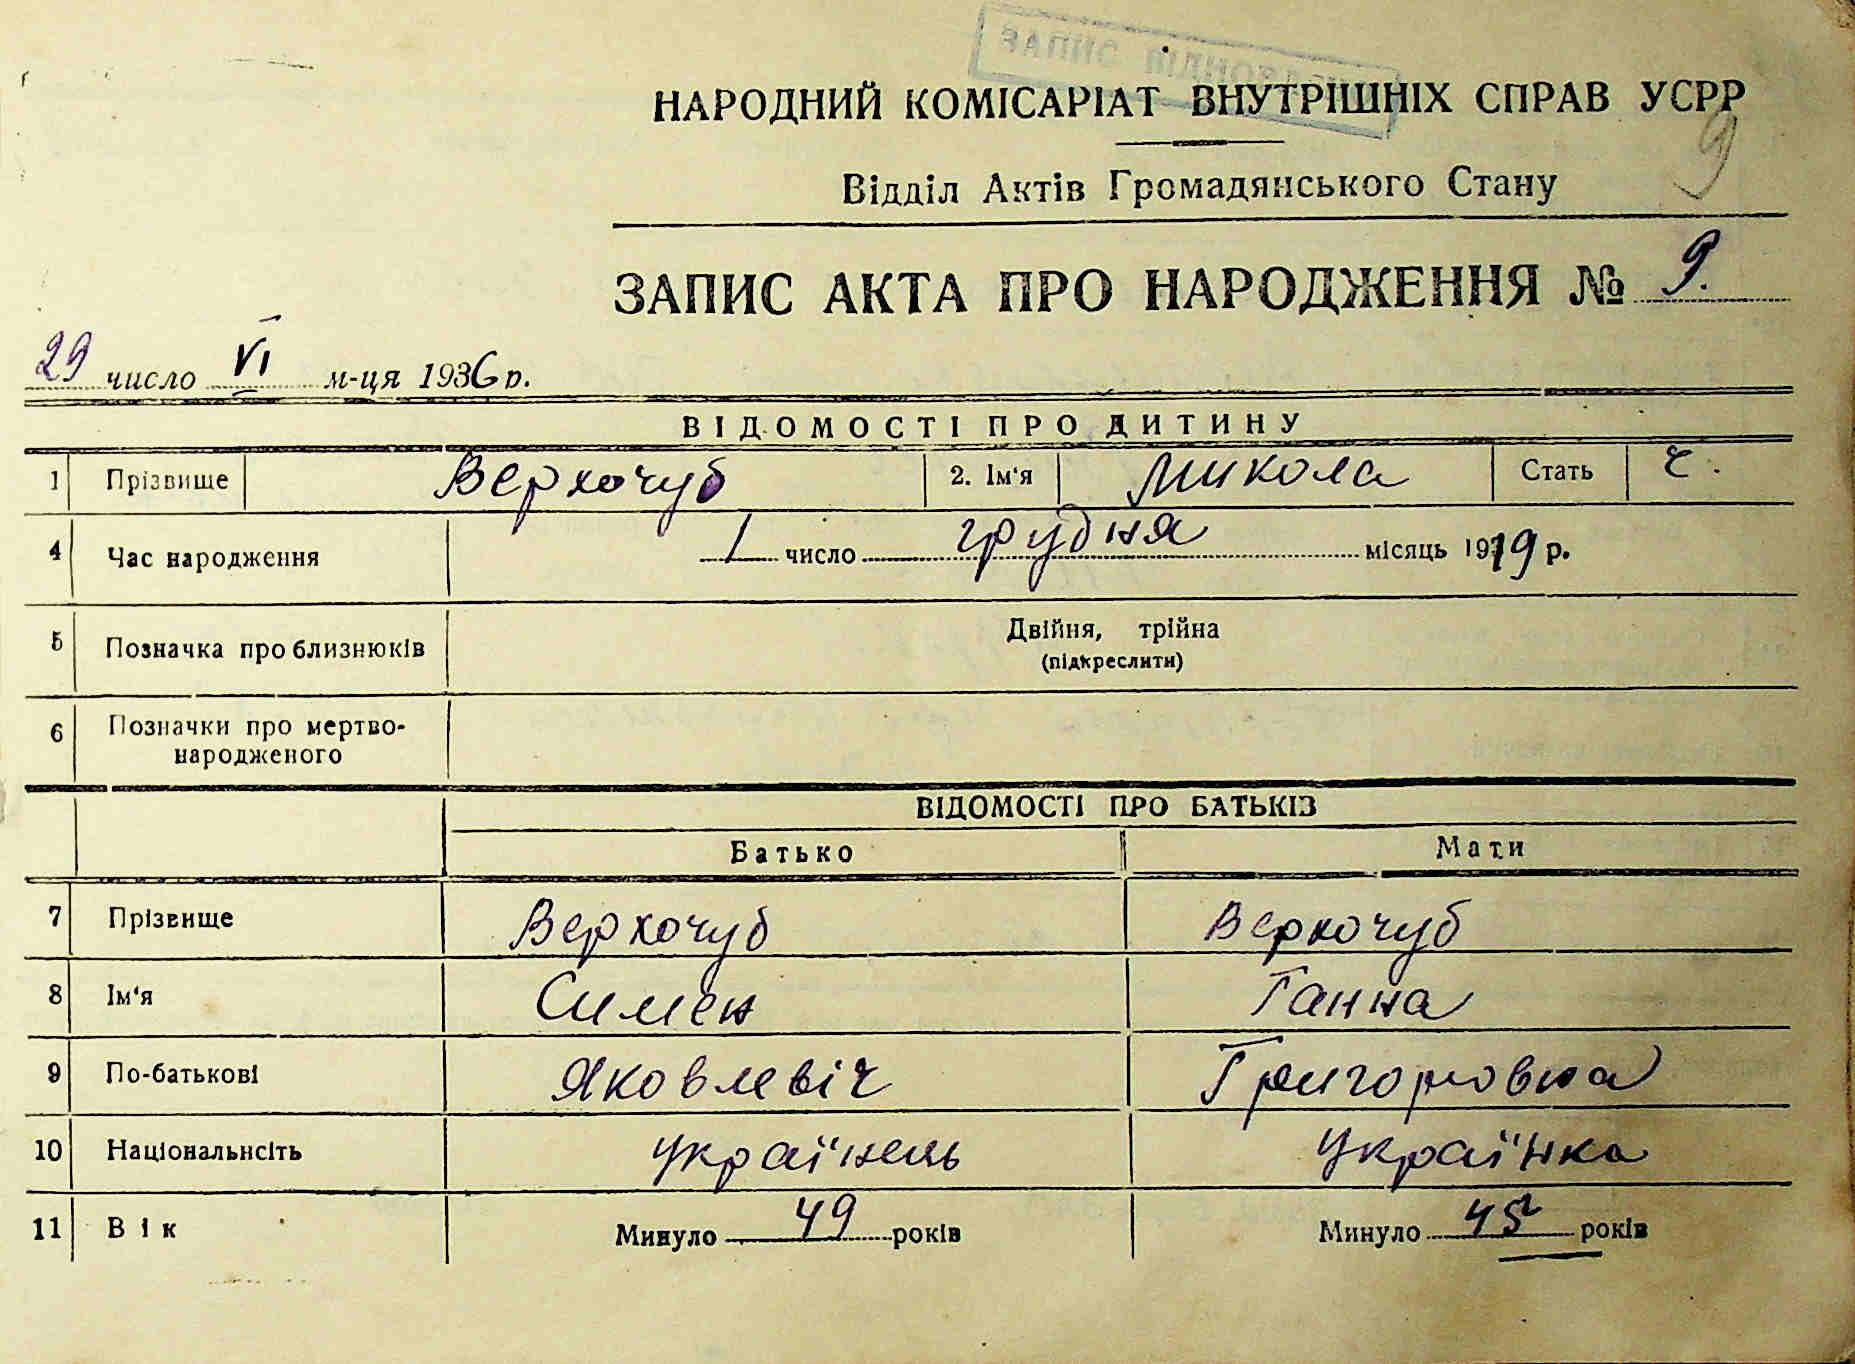 НАРОДНИЙ КОМІСАРІАТ ВНУТРІШНІХ СПРАВ УСРР
9
Відділ Актів Громадянського Стану
ЗАПИС АКТА ПРО НАРОДЖЕННЯ № 9.
29 число VI м-ця 1936 р.
ВІДОМОСТІ ПРО ДИТИНУ
1 Прізвище Верхочуб 2. Ім‘я Микола Стать ч.
4 Час народження 1 число грудня місяць 1919 р.
5 Позначка про близнюків Двійня, трійна
(підкреслити)
6 Позначки про мертво-
народженого
ВІДОМОСТІ ПРО БАТЬКІВ
Батько Мати
7 Прізвище Верхочуб Верхочуб
8 Ім‘я Симен Ганна
9 По-батькові Яковлевіч Григоровна
10 Національнсіть українець Українка
11 Вік Минуло 49 років Минуло 45 років